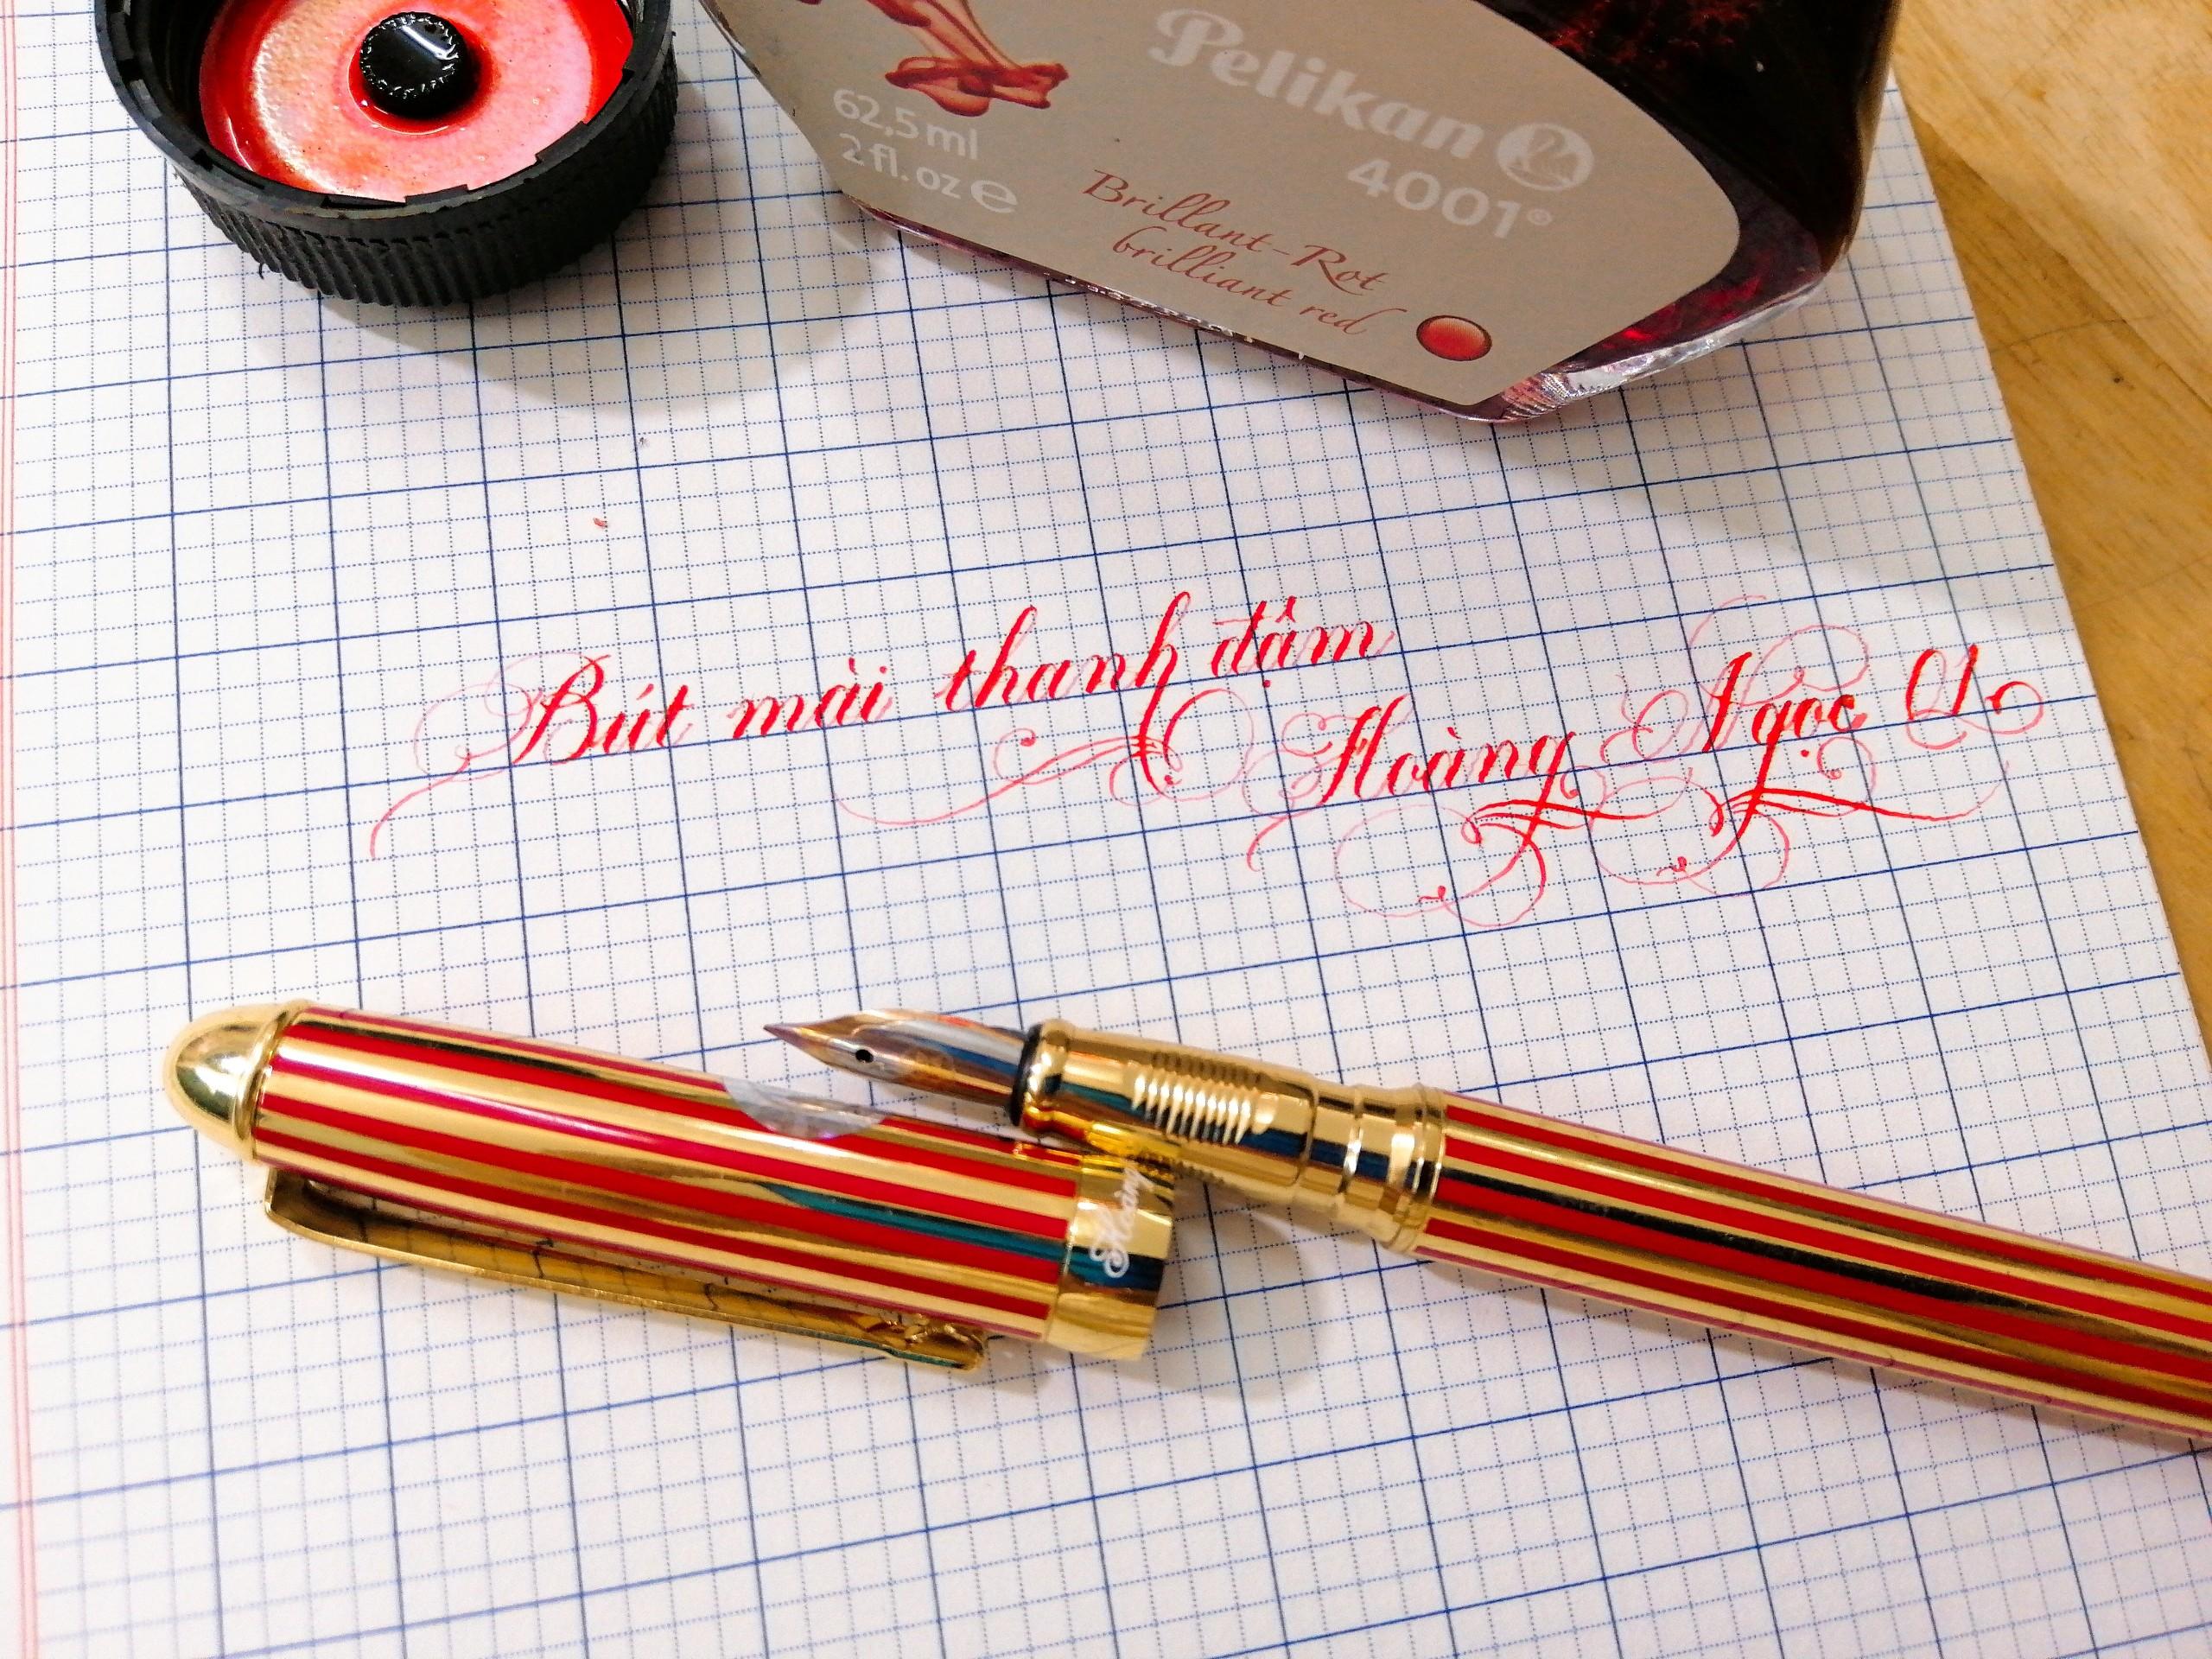 Pelikan
4001®
62,5 ml
2 fl. oz e
Brillant-Rot
brilliant red
Bút mài thanh đậm
Hoàng Ngọc
Hoàng